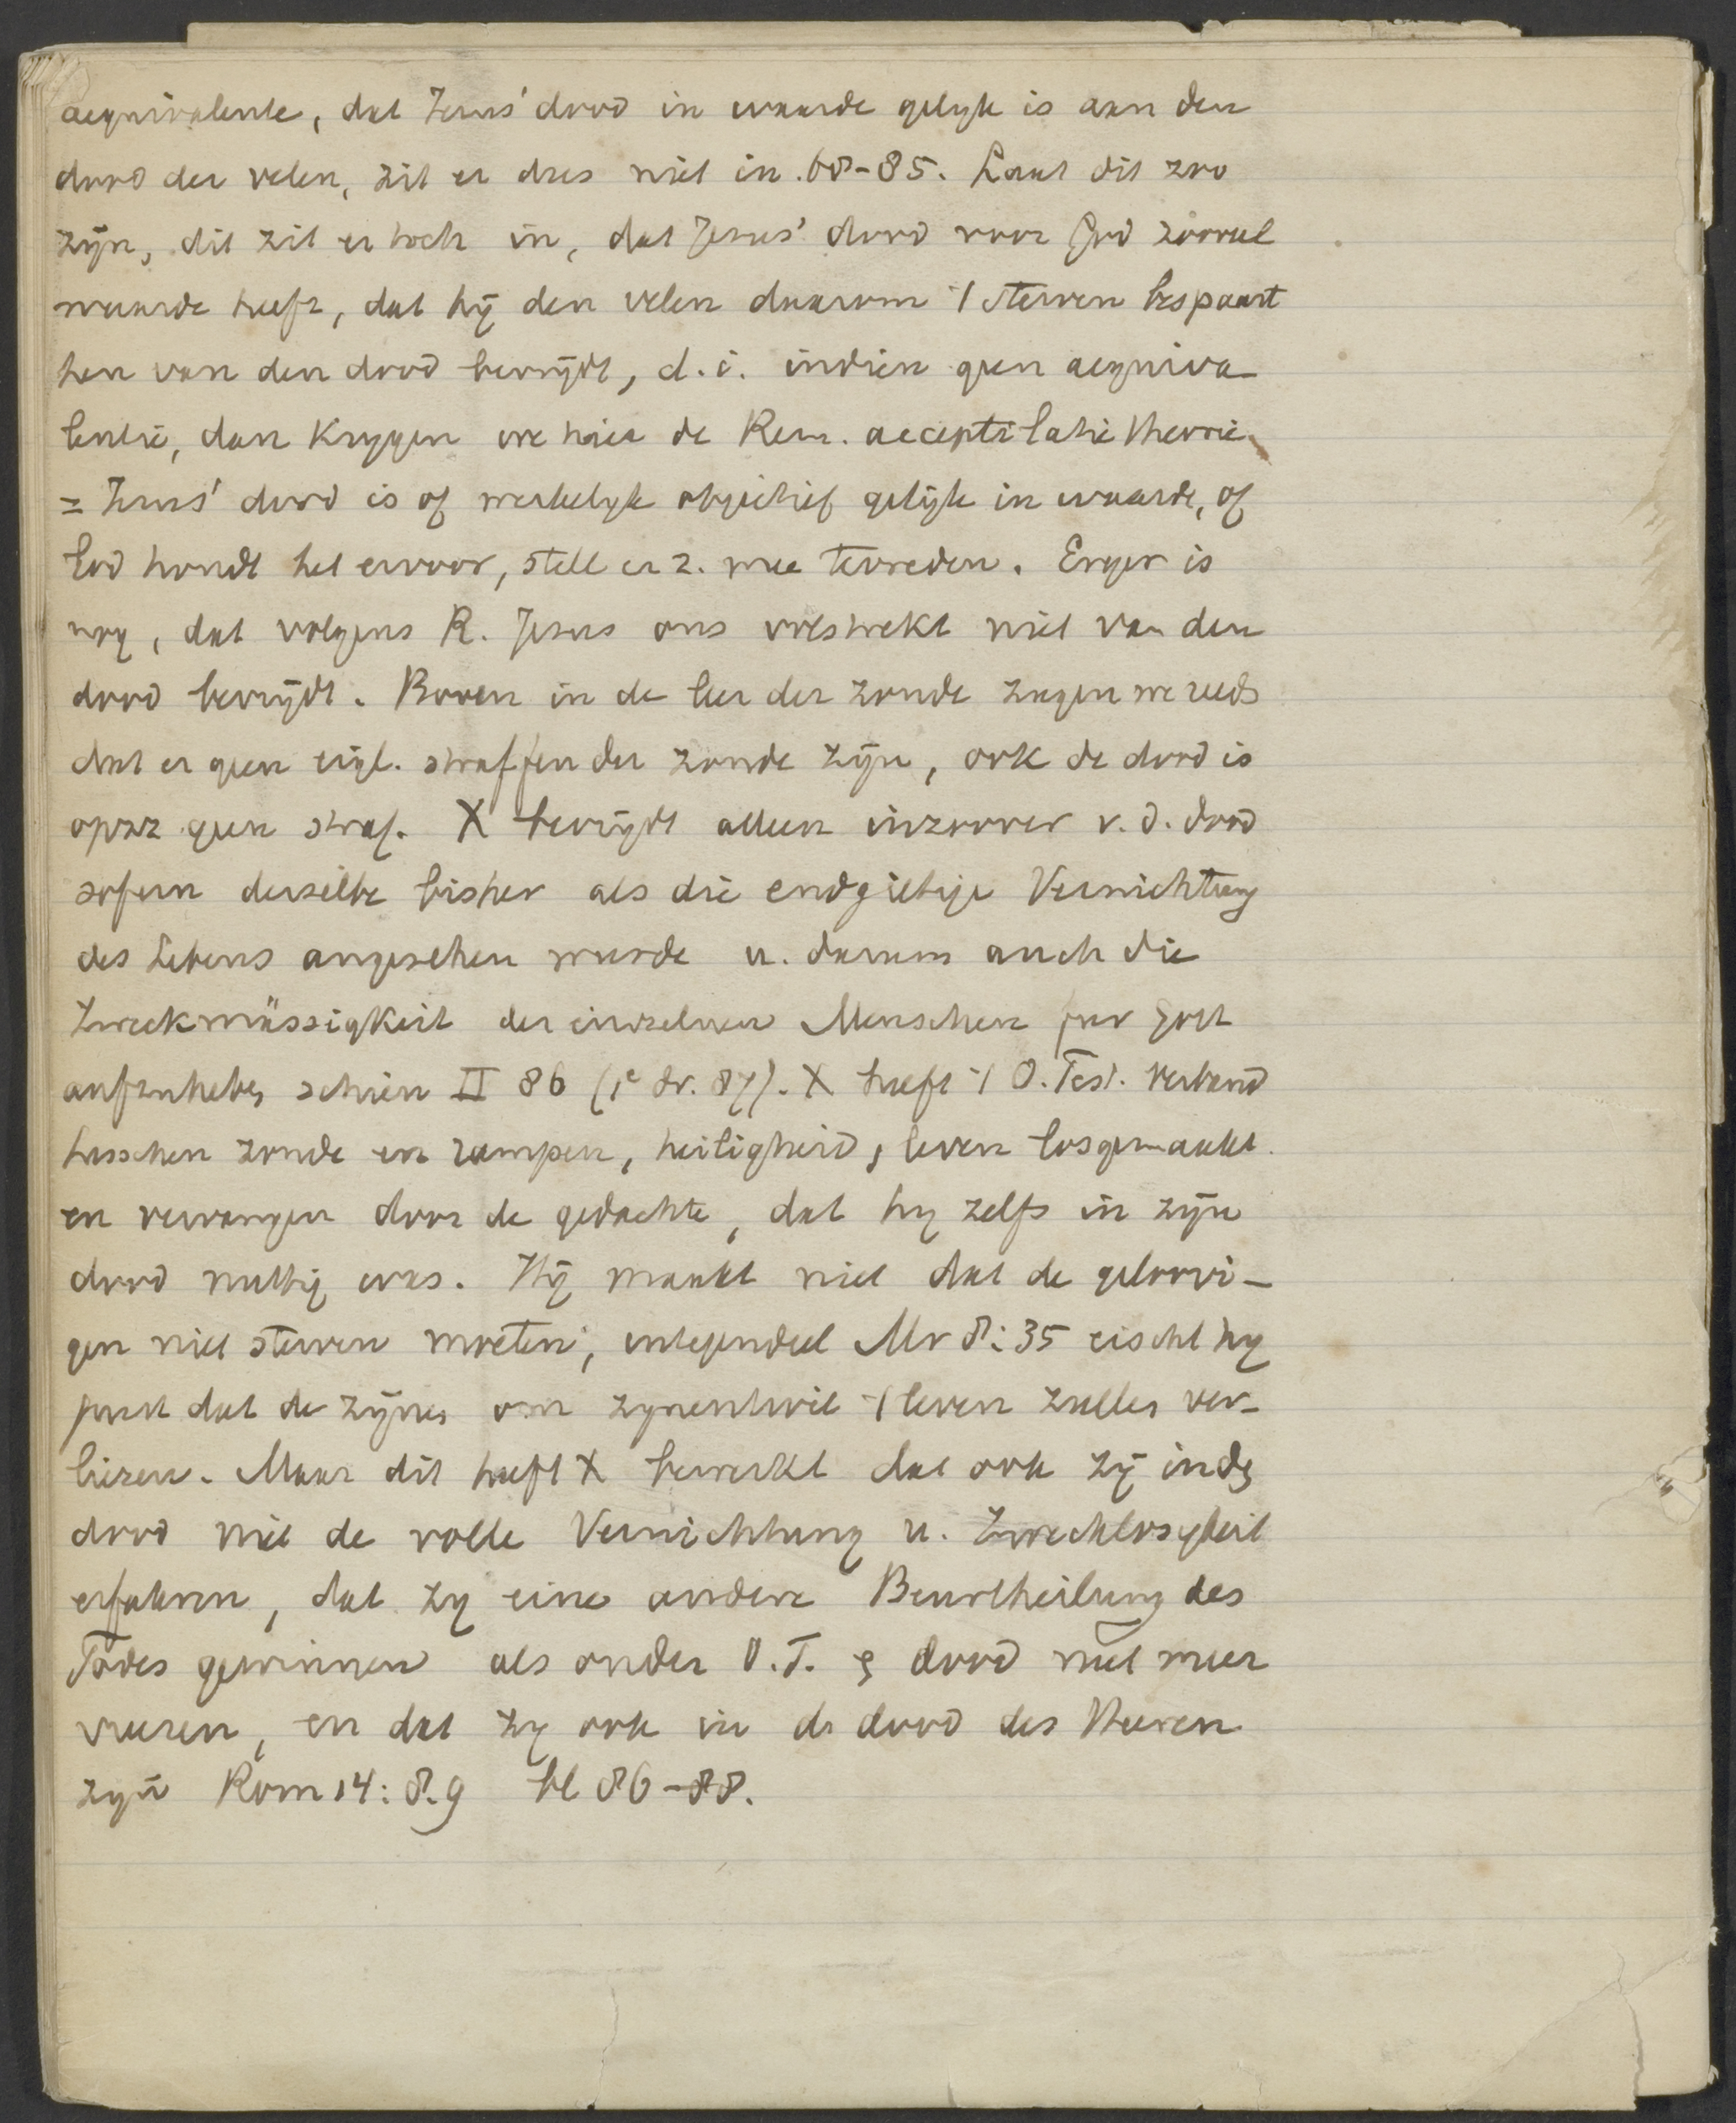 aequivalente, dat Jezus' dood in waarde gelyk is aan den
dood der velen, zit er dus niet in. 68-85. Laat dit zoo
zijn, dit zit er toch in, dat Jezus' dood voor God zooveel
waarde heeft, dat hij den velen daarom 't sterven bespaart
hen van den dood bevrijdt, d.i. indien geen aequiva-
lentie, dan krygen we hier de Rem. acceptilatie theorie
= Jezus' dood is of werkelyk objectief gelijk in waarde, of
God houdt het ervoor, stelt er z. mee tevreden. Erger is
nog, dat volgens R. Jesus ons volstrekt niet van den
dood bevrijdt. Boven in de leer der zonde zagen we reeds
dat er geen eigl. straffen der zonde zijn, ook de dood is
opzz geen straf. X bevrijdt alleen inzoover v.d. dood
sofern derselbe bisher als die endgiltige Vernichtung
des Lebens angesehen wurde u. darum auch die
Zweckmässigkeit der einzelnen Menschen fur Gott
aufzuheben schien II 86 (1e dr. 87). X heeft 't O. Test. verband
tusschen zonde en rampen, heiligheid, leven losgemaakt
en vervangen door de gedachte, dat hy zelfs in zijn
dood nuttig was. Hij maakt niet dat de geloovi-
gen niet sterven moeten, integendeel Mr 8:35 eischt hy
juist dat de zijnen om zynentwil 't leven zullen ver-
liezen. Maar dit heeft X bewerkt dat ook zij in den
dood niet de volle Vernichtung u. Zwecklosigkeit
erfahren, dat zy eine andere Beurtheilung des
Todes gewinnen als onder O.T. en dood niet meer
vreezen, en dat zy ook in de dood des Heeren
zyn Rom 14:8.9 bl 86-88.